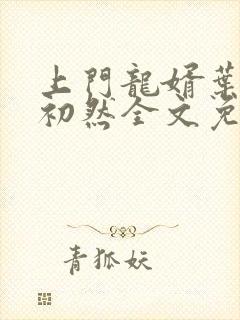 上門龍婿葉
初然全文免
青狐妖